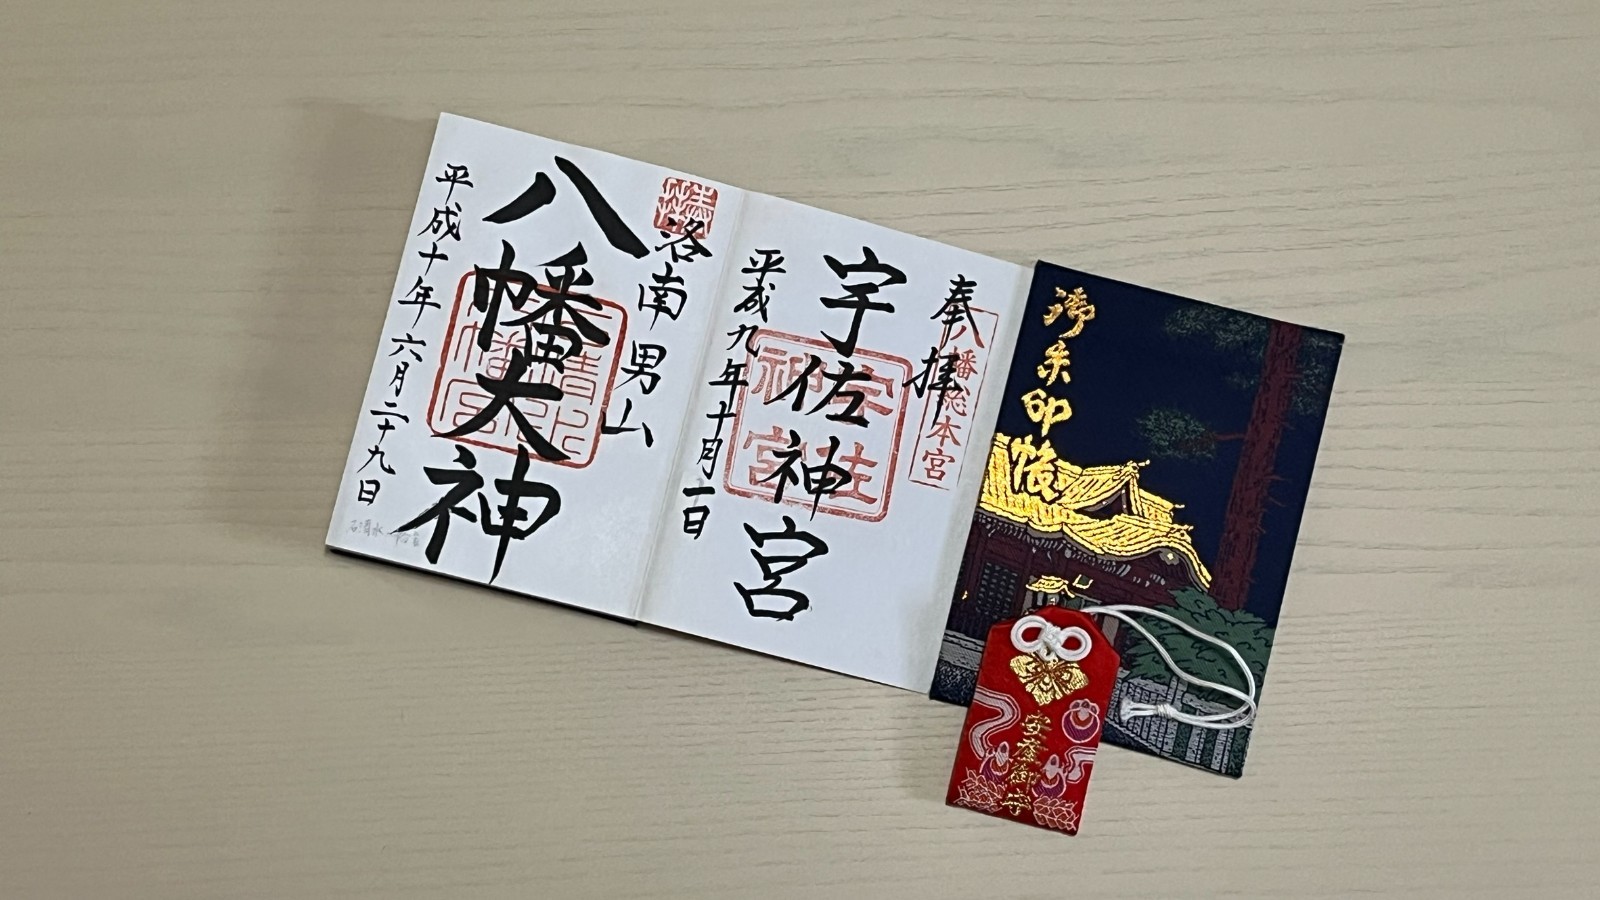 御朱印帳
安産御守
奉拝
八幡総本宮
宇佐神宮
宇佐
神宮
平成九年十月一日
洛南男山
八幡大神
平成十年六月二十九日
石清水